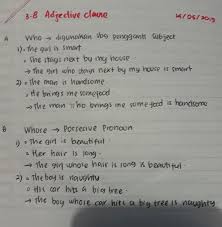 3.8 Adjective clause
16/05/2023
A Who → digunakan sbg pengganti subject
1) • The girl is smart
• She stays next by my house
→ The girl who stays next by my house is smart
2) • The man is handsome
• He brings me some food
→ The man who brings me some food is handsome
B Whose → Possecive Pronoun
1) • The girl is beautiful
• Her hair is long
→ The girl whose hair is long is beautiful
2) • The boy is naughty
• His car hits a big tree
→ The boy whose car hits a big tree is naughty